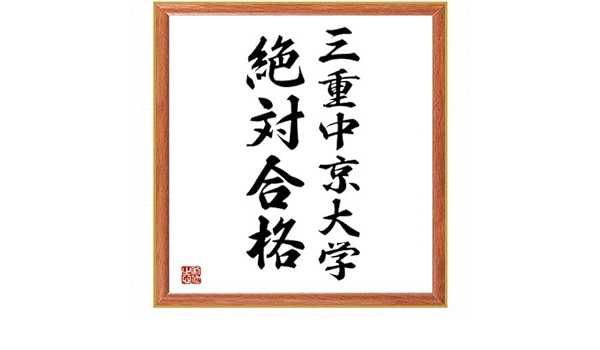 三重中京大学
絶対合格